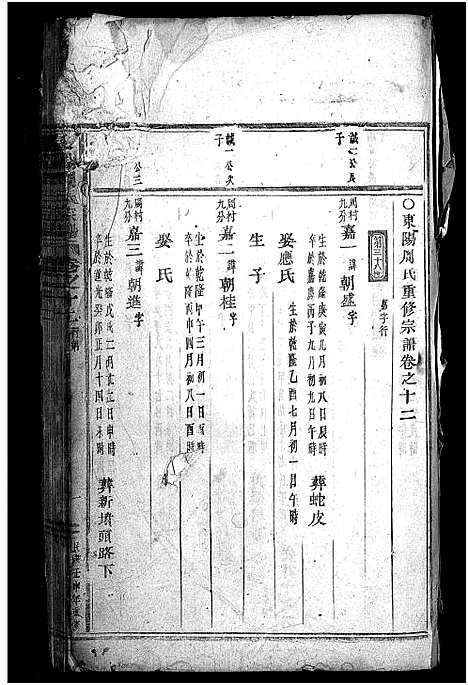 ○東陽周氏重修宗譜卷之十二
第三十八世
嘉字行
誠一公長子
周村九分
嘉一諱朝盛字
生於乾隆庚寅八月初八日辰時
卒於嘉慶丙子九月初九日午時
葬蛇皮
娶應氏
生於乾隆乙酉七月初一日午時
生子
誠一公次子
周村九分
嘉二諱朝桂字
生於乾隆甲午三月初一日酉時
卒於 丙申四月初八日酉時
娶氏
公三
周村九分
嘉三諱朝進字
生於乾隆戊戌二月 日申時
卒於道光癸卯正月十四日未時
葬新墳頭路下
卷之十二